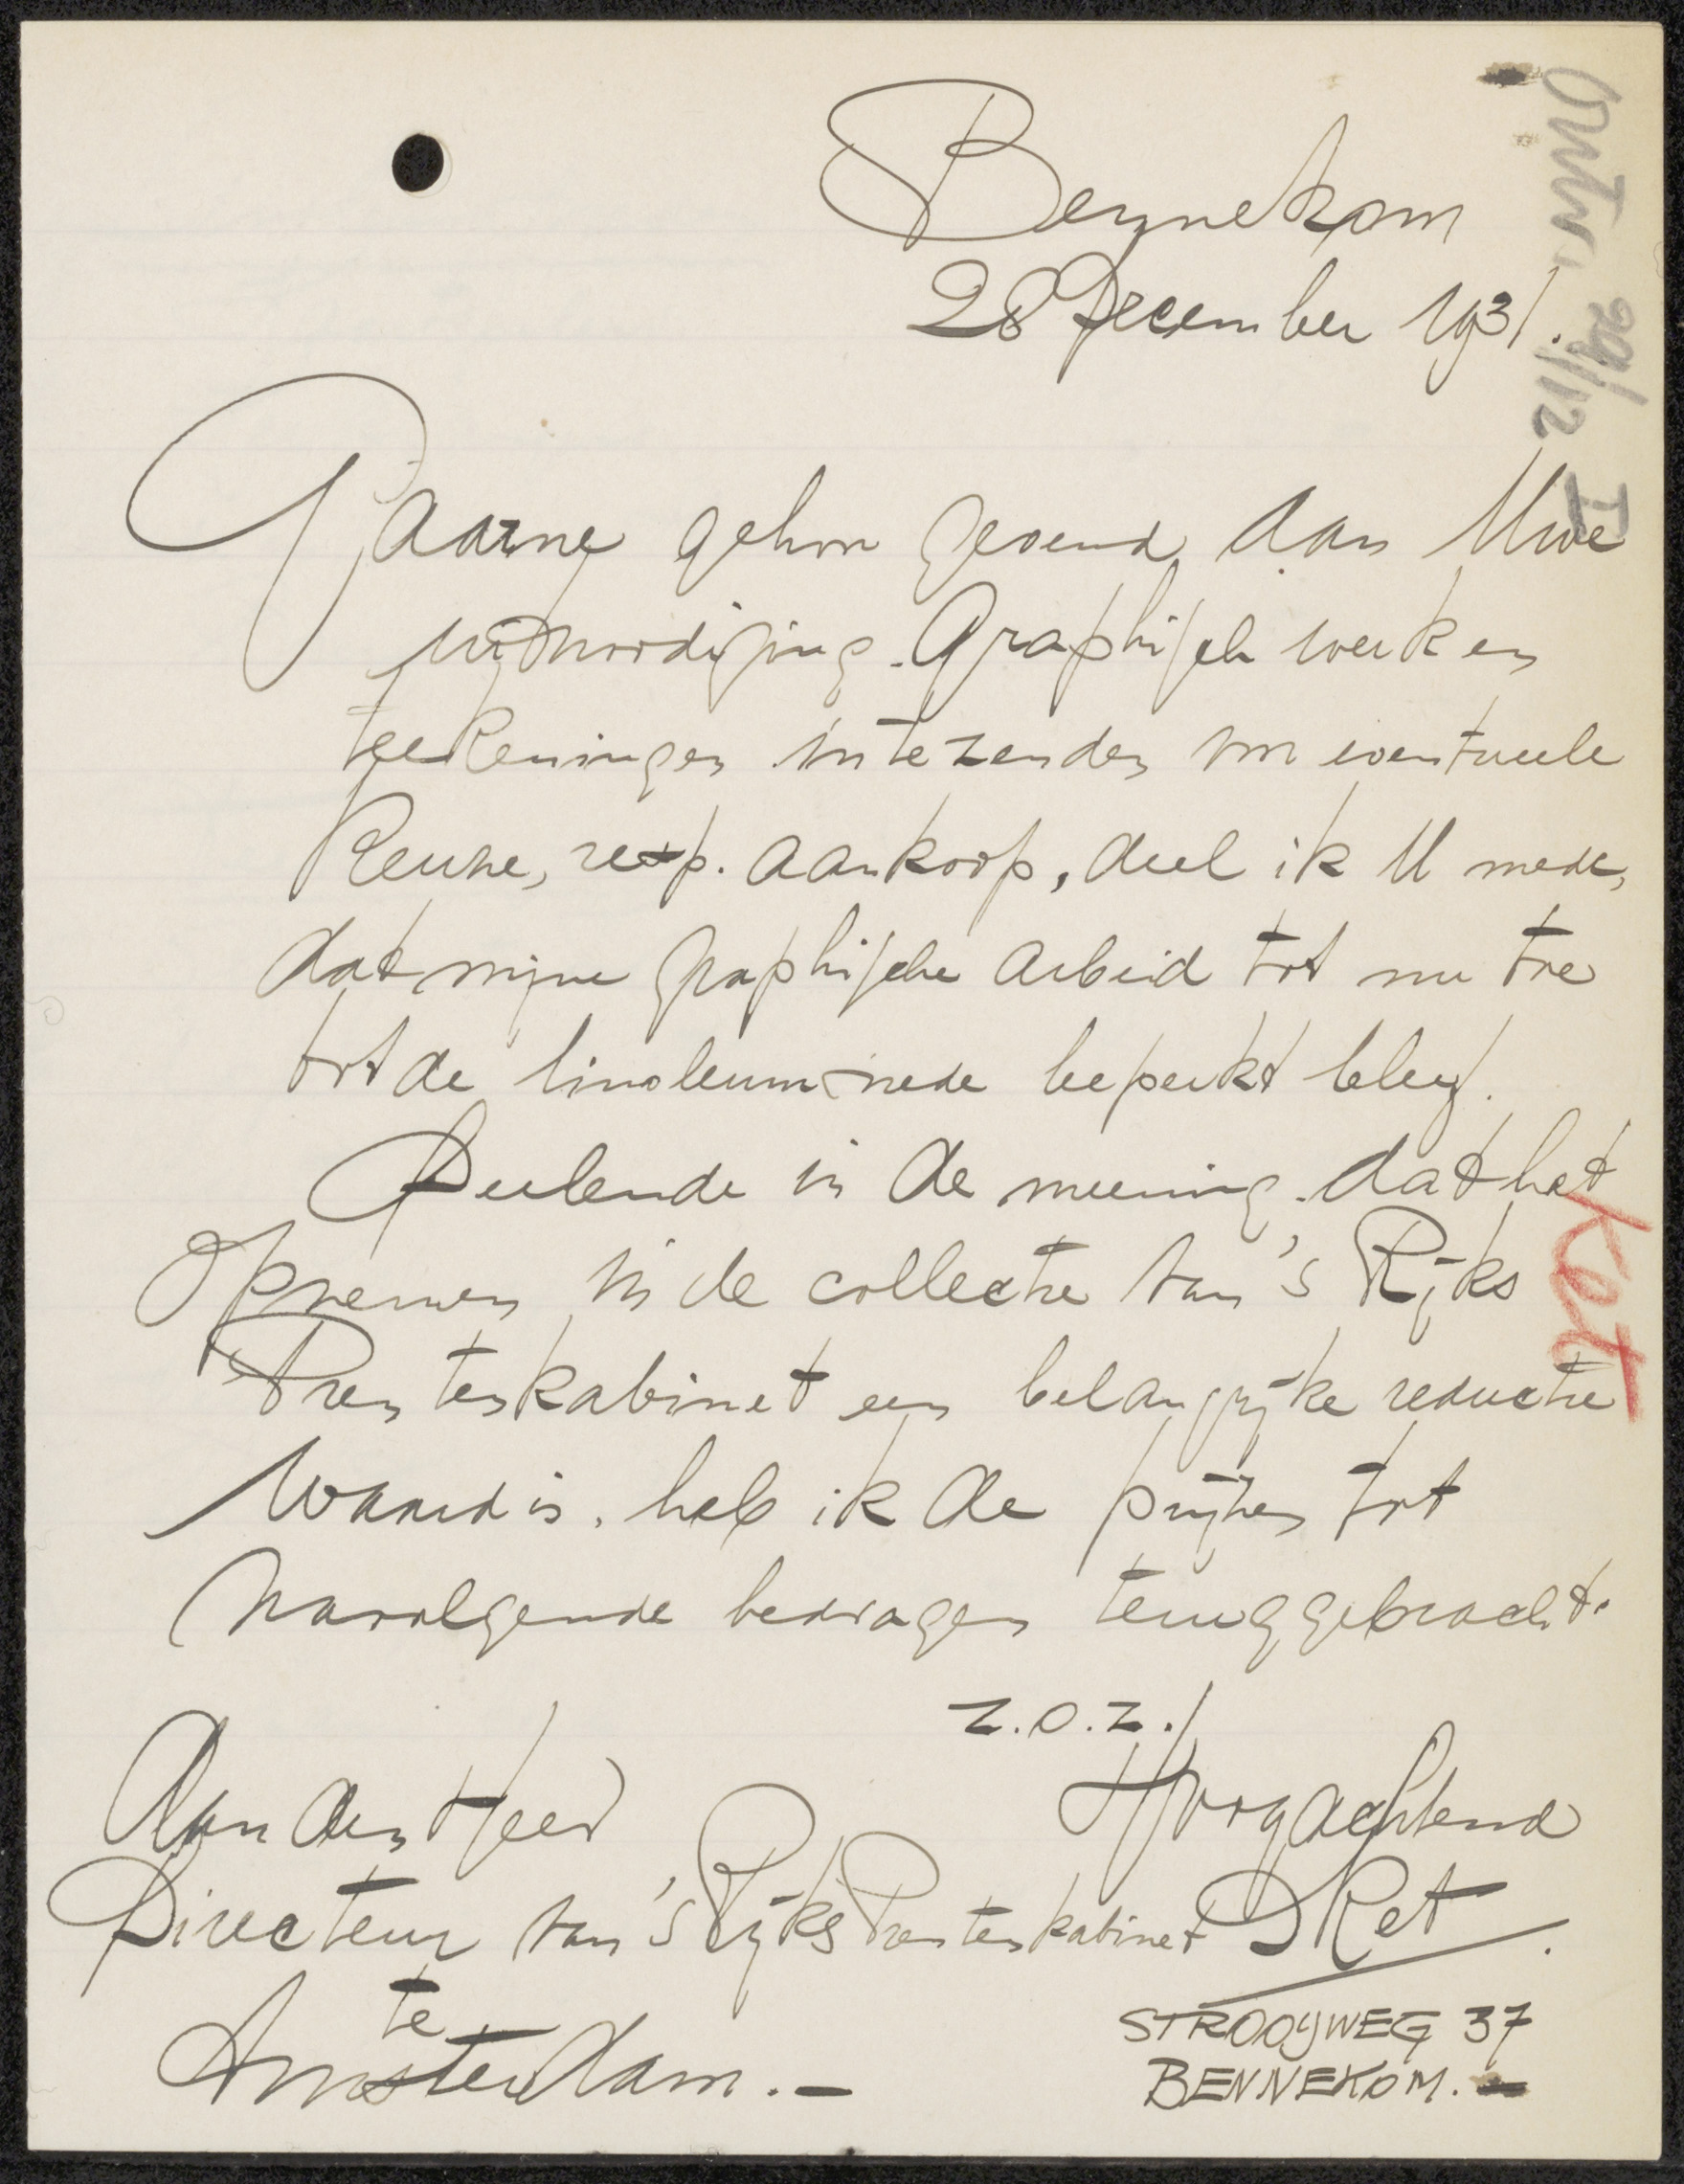 Bennekom
28 December 1931.
Gaarne gehoor gevend aan Uwe
uitnoodiging. Graphisch werk en
teekeningen intezenden om eventueele
keuze, resp. aankoop, deel ik U mede,
dat mijne graphische arbeid tot nu toe
tot de linoleumsnede beperkt bleef.
Deelende in de meening. dat het
opnemen in de collectie van 's Rijks
Prentenkabinet een belangrijke reductie
waard is, heb ik de prijzen tot
navolgende bedragen teruggebracht.
z.o.z.
Hoogachtend
DKet.
STROOIJWEG 37
BENNEKOM.
Aan den Heer
Directeur van 's Rijks Prentenkabinet
te
Amsterdam.-
Ontv. 29/12 I
Ket